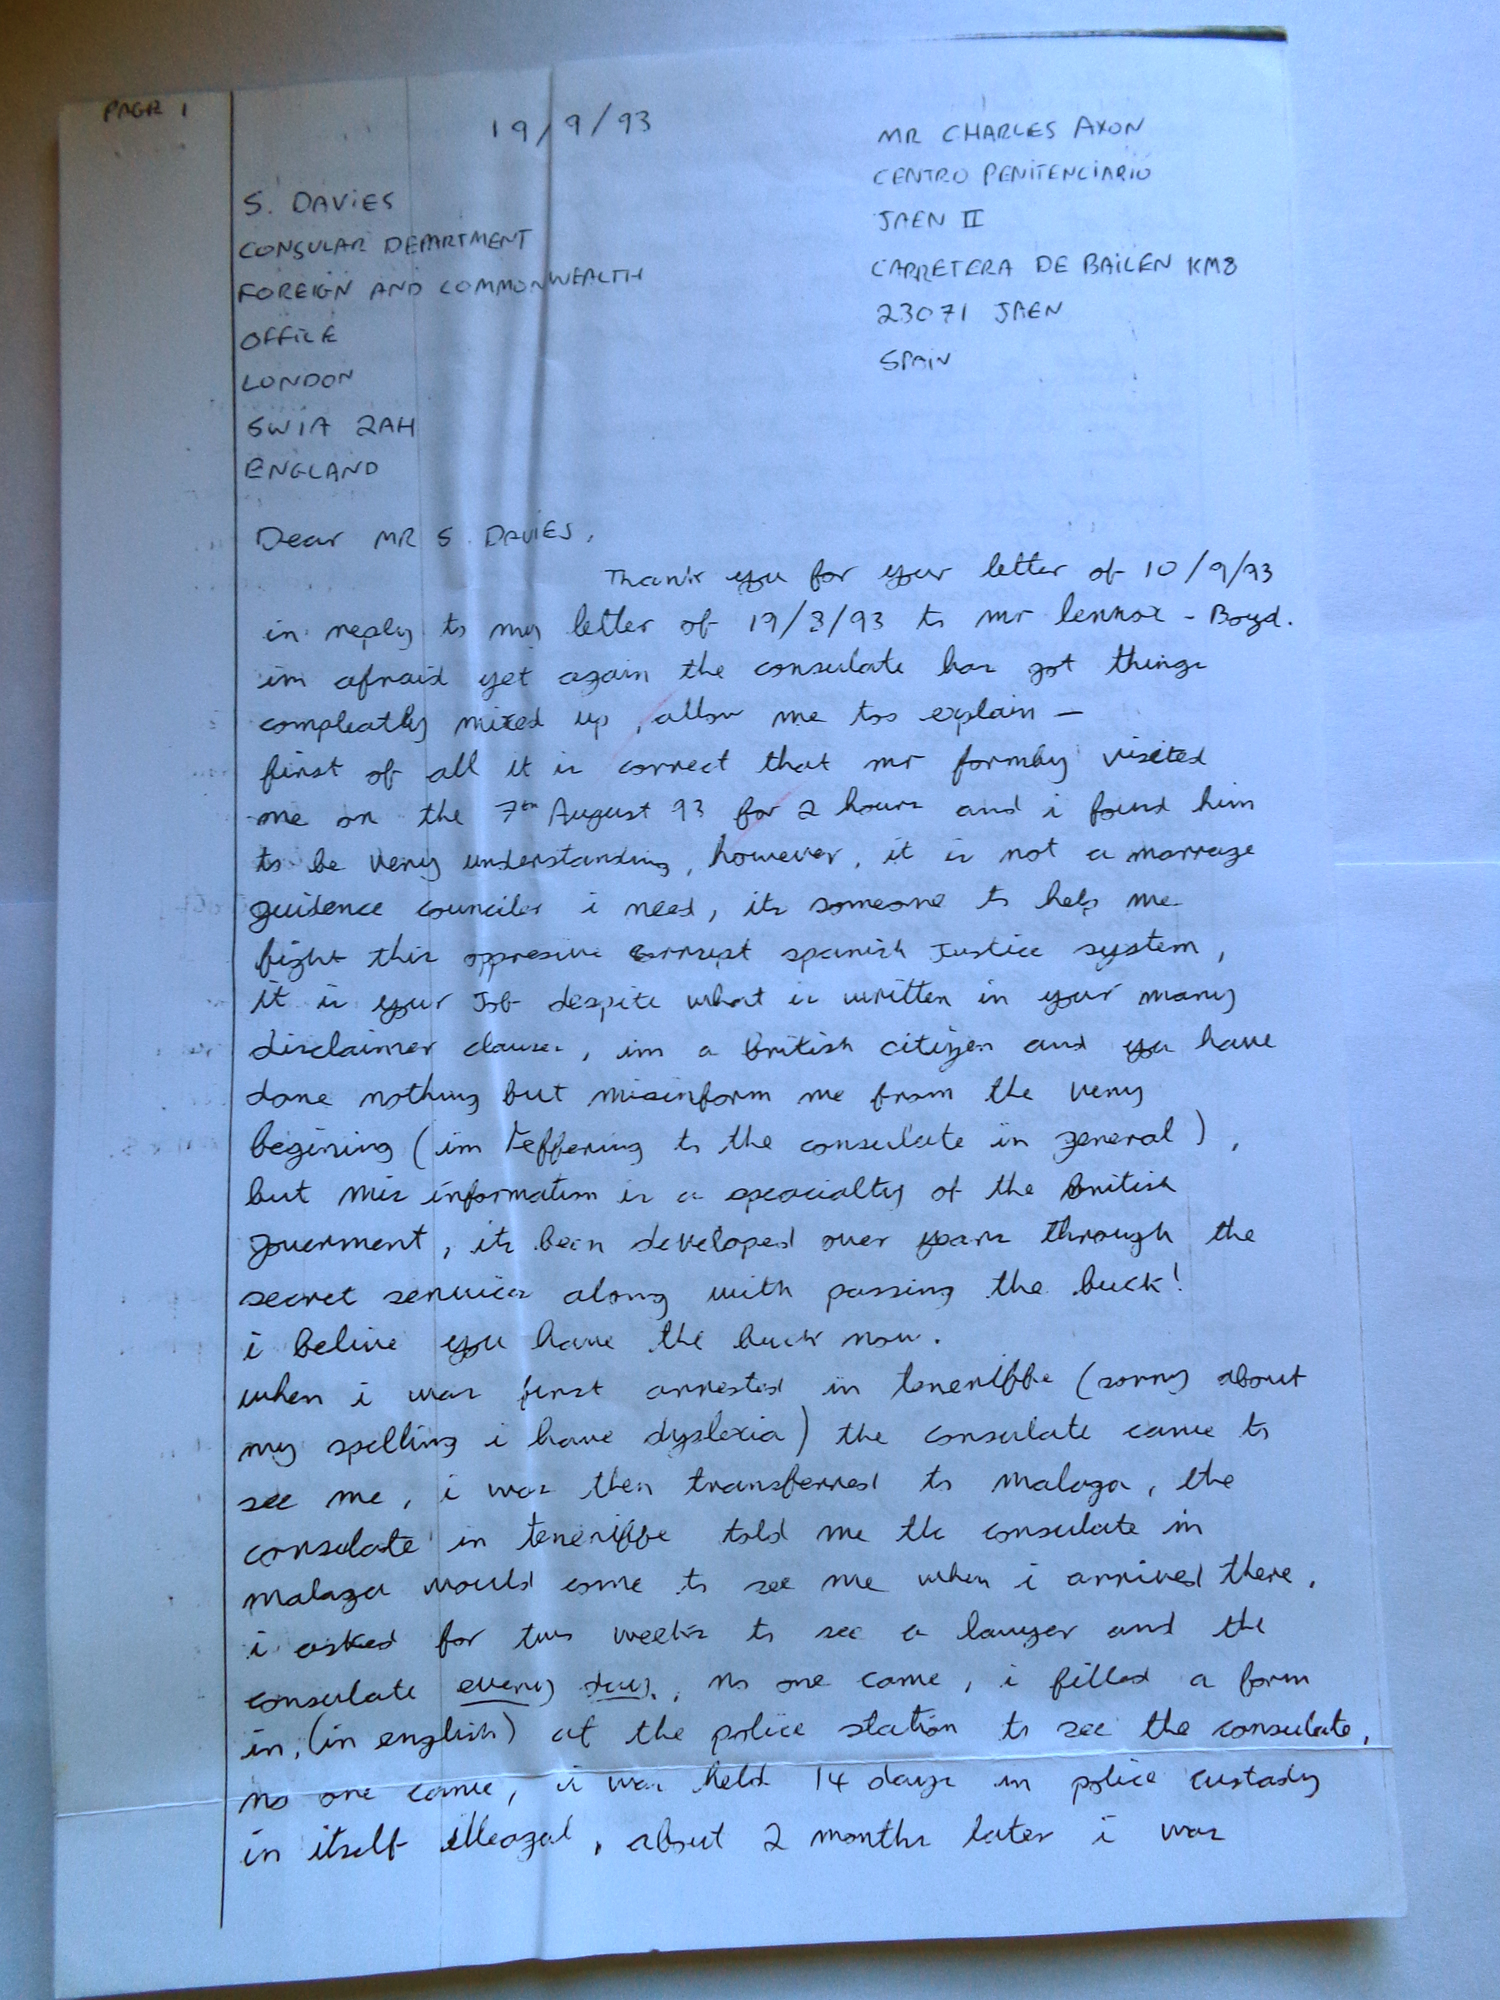 PAGE 1
19/9/93
MR CHARLES AXON
CENTRO PENITENCIARIO
JAEN II
CARRETERA DE BAILEN KM8
23071 JAEN
SPAIN
S. DAVIES
CONSULAR DEPARTMENT
FOREIGN AND COMMONWEALTH
OFFICE
LONDON
SW1A 2AH
ENGLAND
Dear MR S. DAVIES,
Thank you for your letter of 10/9/93
in reply to my letter of 19/8/93 to mr lennox - Boyd.
im afraid yet again the consulate has got things
compleatly mixed up, allow me too explain —
first of all it is correct that mr formby visited
me on the 7th August 93 for 2 hours and i found him
to be very understanding, however, it is not a marrage
guidence counciler i need, its someone to help me
fight this oppresive corrupt spanish Justice system,
it is your Job despite what is written in your many
disclaimer clauses, im a british citizen and you have
done nothing but misinform me from the very
begining (im reffering to the consulate in general),
but mis information is a speacialty of the british
goverment, its been developed over years through the
secret services along with passing the buck!
i belive you have the buck now.
when i was first arrested in teneriffe (sorry about
my spelling i have dyslexia) the consulate came to
see me, i was then transferred to malaga, the
consulate in teneriffe told me the consulate in
malaga would come to see me when i arrived there,
i asked for two weeks to see a lawyer and the
consulate every day, no one came, i filled a form
in, (in english) at the police station to see the consulate,
no one came, i was held 14 days in police custady
in itself illeagal, about 2 months later i was